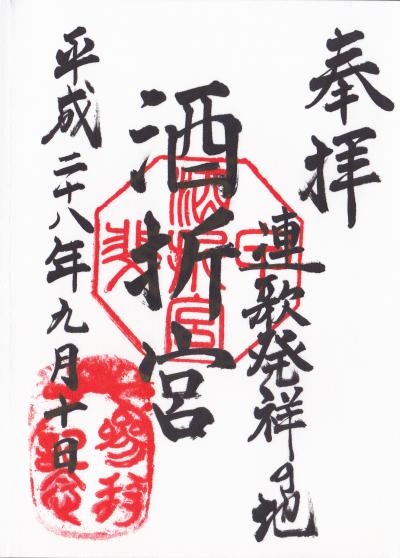 奉拝
連歌発祥の地
酒折宮
平成二十八年九月十日